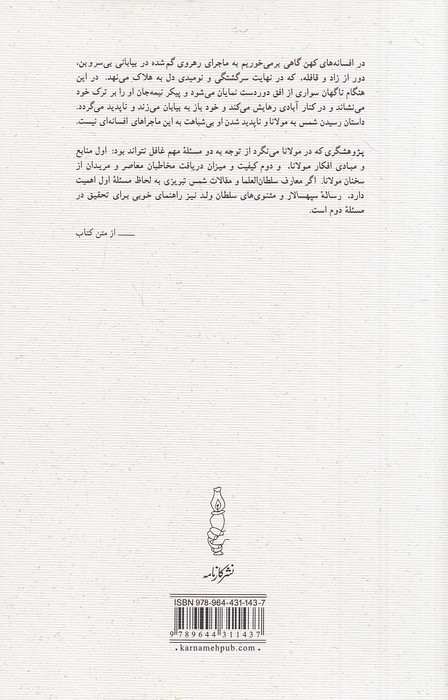 در افسانه‌های کهن گاهی برمی‌خوریم به ماجرای رهروی گم‌شده در بیابانی بی‌سروبن،
دور از زاد و قافله، که در نهایت سرگشتگی و نومیدی دل به هلاک می‌نهد. در این
هنگام ناگهان سواری از افق دوردست نمایان می‌شود و پیکر نیمه‌جان او را بر ترک خود
می‌نشاند و در کنار آبادی رهایش می‌کند و خود باز به بیابان می‌زند و ناپدید می‌گردد.
داستان رسیدن شمس به مولانا و ناپدید شدن او بی‌شباهت به این ماجراهای افسانه‌ای نیست.
پژوهشگری که در مولانا می‌نگرد از توجه به دو مسئلهٔ مهم غافل نتواند بود: اول منابع
و مبادی افکار مولانا، و دوم کیفیت و میزان دریافت مخاطبان معاصر و مریدان از
سخنان مولانا. اگر معارف سلطان‌العلما و مقالات شمس تبریزی به لحاظ مسئلهٔ اول اهمیت
دارد، رسالهٔ سپهسالار و مثنوی‌های سلطان ولد نیز راهنمای خوبی برای تحقیق در
مسئلهٔ دوم است.
—— از متن کتاب
نشر کارنامه
ISBN 978-964-431-143-7
9 789644 311437
• karnamehpub.com •